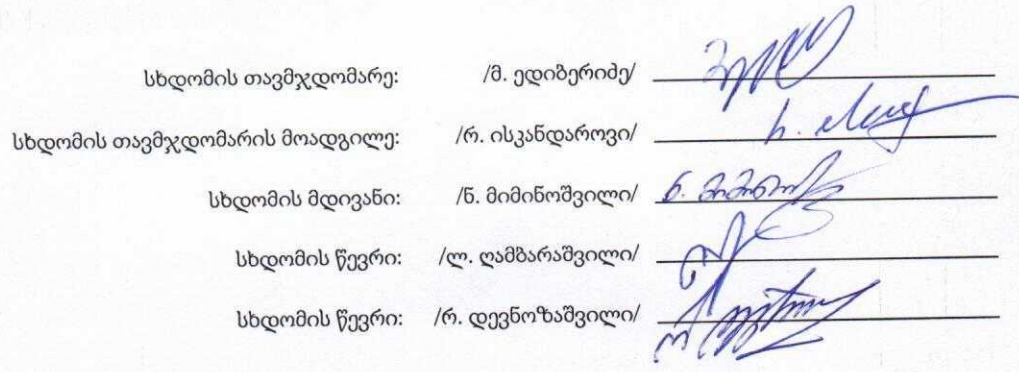 სხდომის თავმჯდომარე: /მ. ედიბერიძე/
სხდომის თავმჯდომარის მოადგილე: /რ. ისკანდაროვი/
სხდომის მდივანი: /ნ. მიმინოშვილი/ ნ. მიმინოშ
სხდომის წევრი: /ლ. ღამბარაშვილი/
სხდომის წევრი: /რ. დევნოზაშვილი/